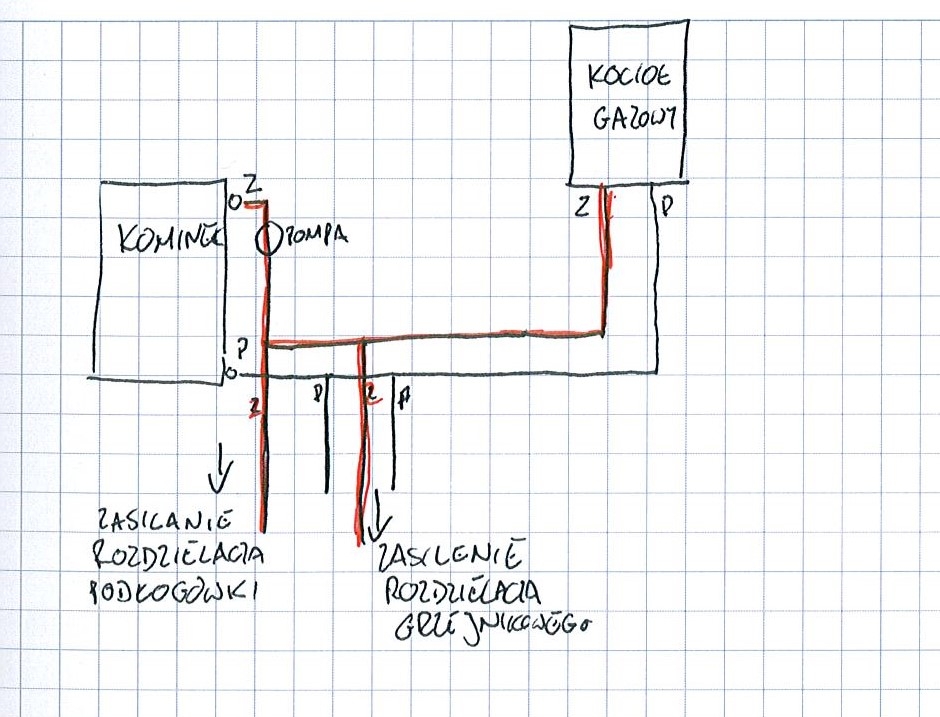 KOCIOŁ
GAZOWY
Z
P
Z
KOMINEK
POMPA
P
Z
P
Z
P
ZASILANIE
ROZDZIELACZA
PODŁOGÓWKI
ZASILENIE
ROZDZIELACZA
GRZEJNIKOWEGO